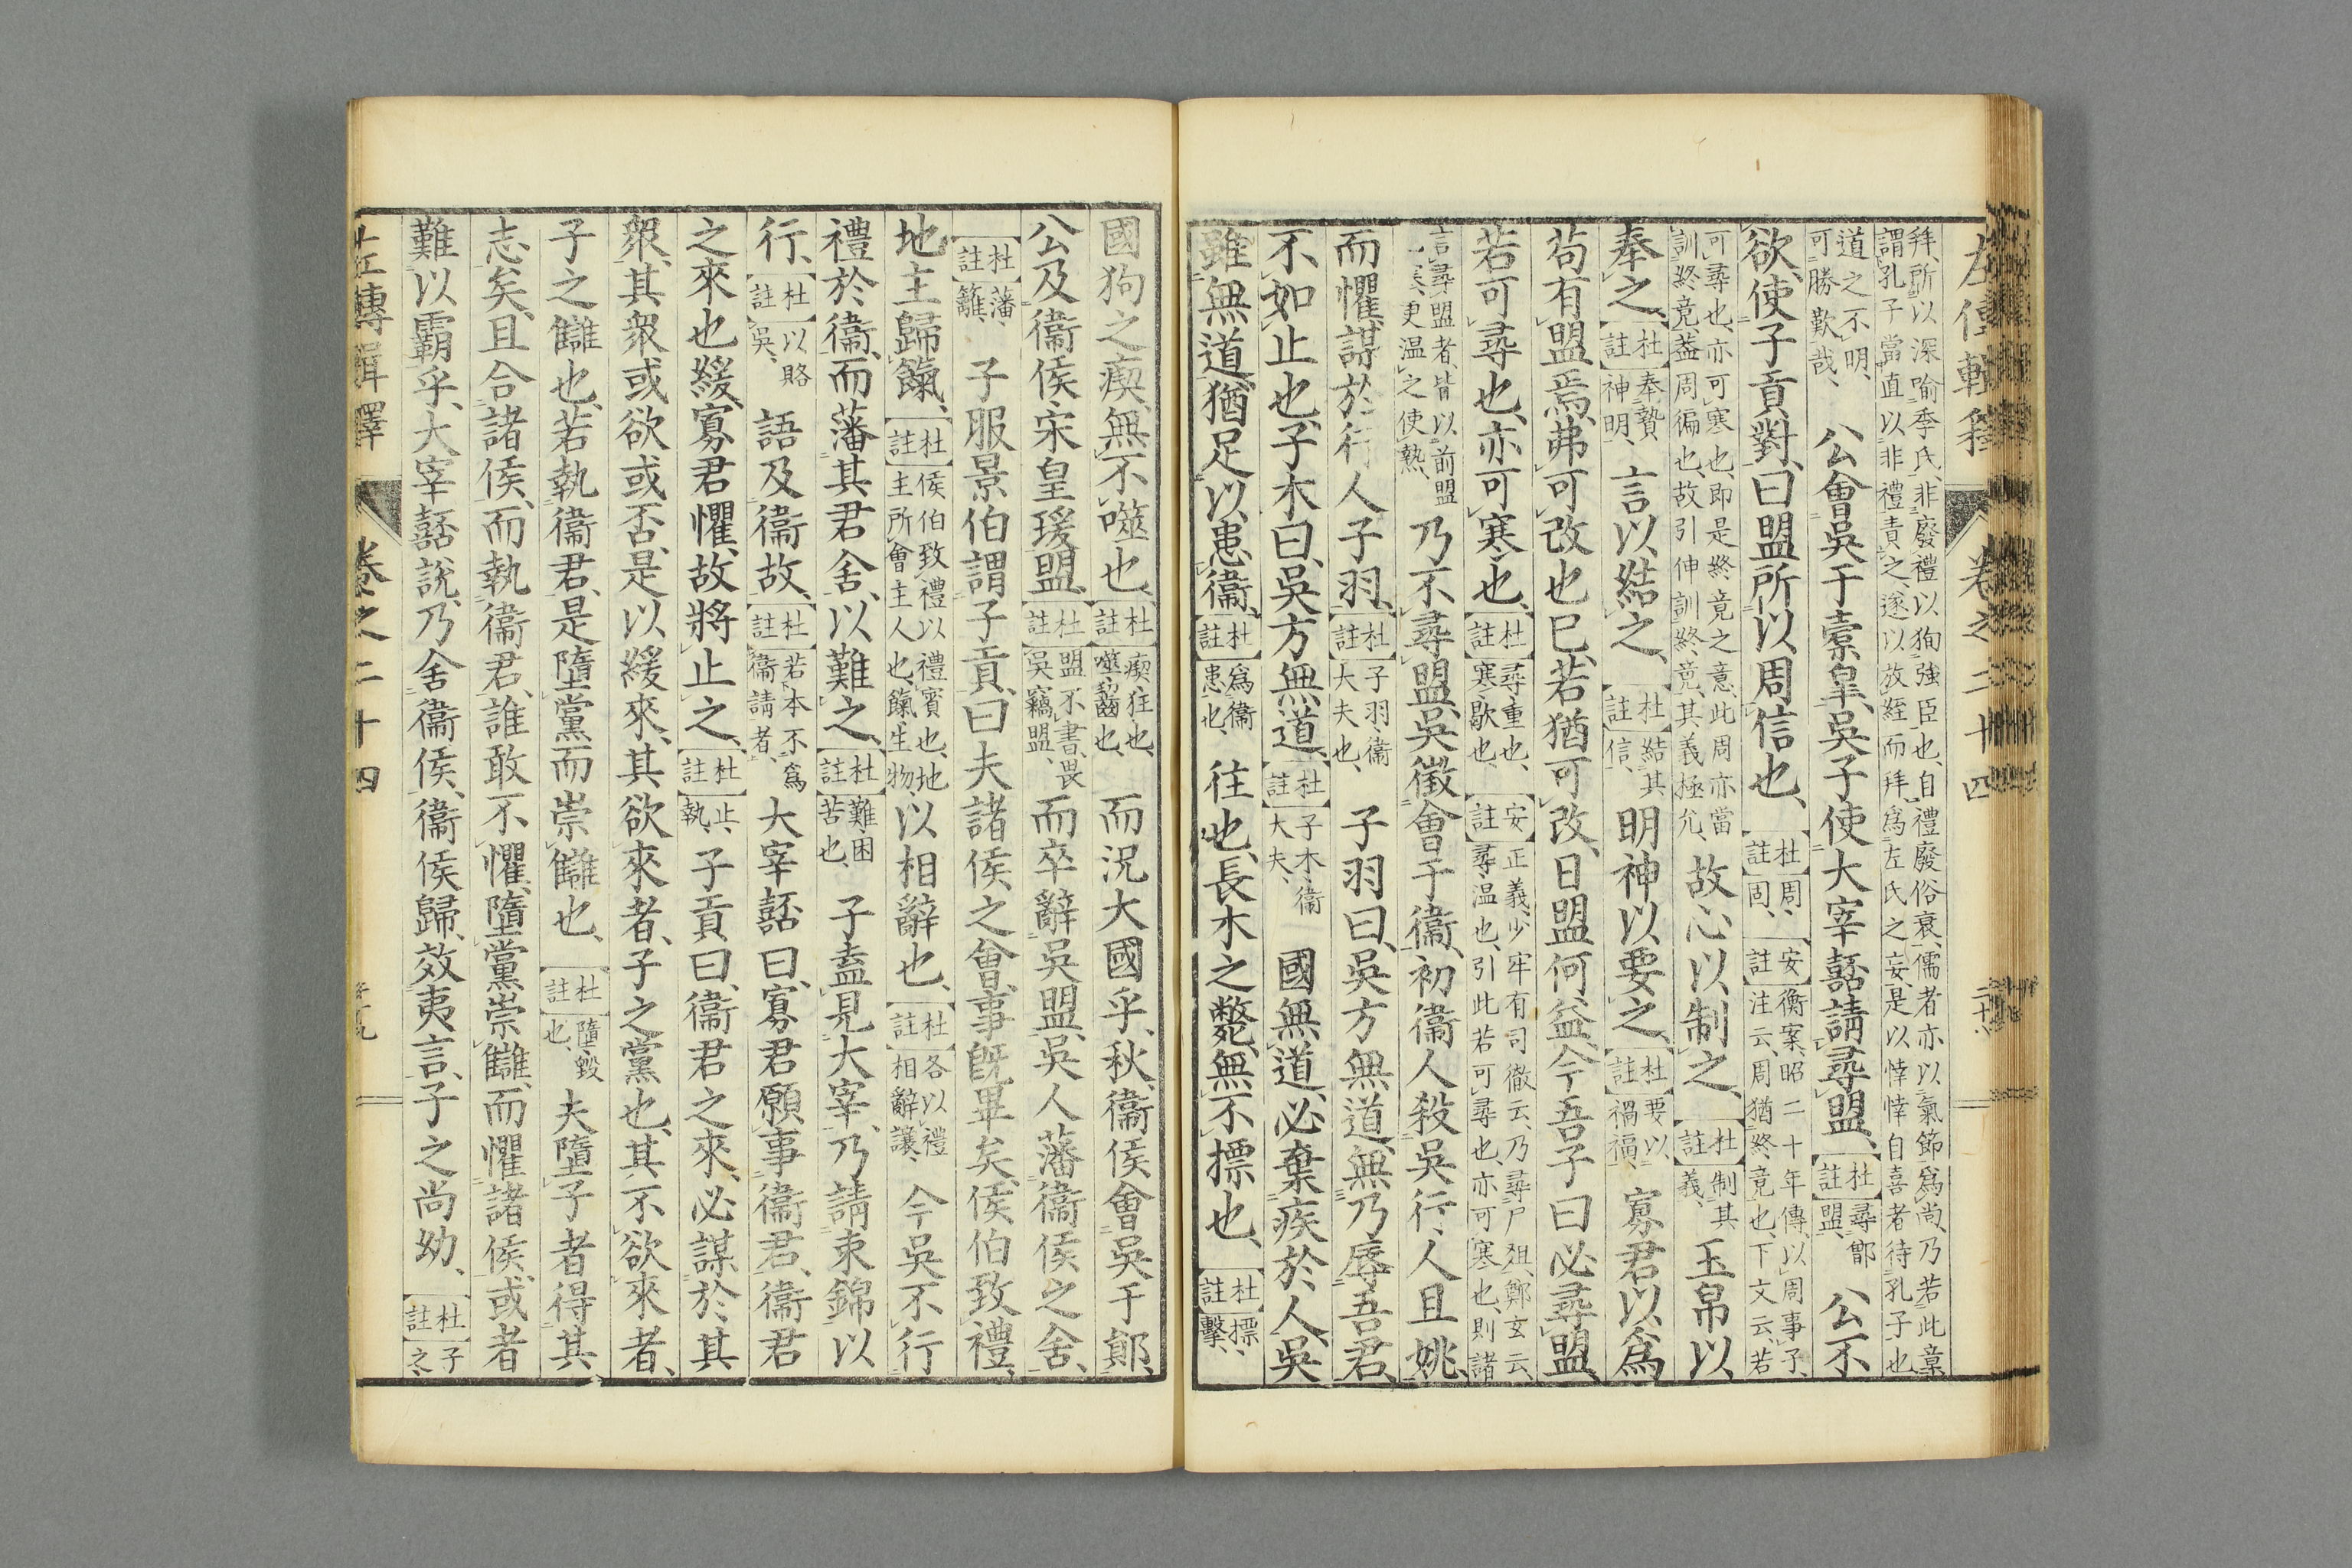 左傳輯釋 卷之二十四
拜、所以深喻季氏、非廢禮以狥強臣也、自禮廢俗衰、儒者亦以氣節爲尚、乃若此章
謂孔子當直以非禮責之、遂以放絰而拜、爲左氏之妄、是以悻悻自喜者待孔子也、
道之不明、
可勝歎哉、
公會吳于橐皐、吳子使大宰嚭請尋盟、杜註尋鄫盟、公不
欲、使子貢對、曰盟所以周信也、杜註周、固、安註衡案、昭二十年傳、以周事子、注云、周猶終竟也、下文云、若
可尋也、亦可寒也、即是終竟之意、此周亦當
訓終竟、蓋周徧也、故引伸訓終竟、其義極允、
故心以制之、杜註制其義、玉帛以
奉之、杜註奉贄神明、言以結之、杜註結其信、明神以要之、杜註要以禍福、寡君以爲
苟有盟焉、弗可改也巳、若猶可改、日盟何益、今吾子曰必尋盟、
若可尋也、亦可寒也、杜註尋重也、寒歇也、安註正義、少牢有司徹云、乃尋尸俎、鄭玄云、尋温也、引此若可尋也、亦可寒也、則諸
言尋盟者、皆以前盟
已寒、更温之使熱、
乃不尋盟、吳徵會于衞、初衞人殺吳行人且姚、
而懼、謀於行人子羽、杜註子羽、衞大夫也、子羽曰、吳方無道、無乃辱吾君、
不如止也、子木曰、吳方無道、杜註子木、衞大夫、國無道、必棄疾於人、吳
雖無道、猶足以患衞、杜註爲衞患也、往也、長木之斃、無不摽也、杜註摽、擊、
國狗之瘈、無不噬也、杜註瘈狂也、噬齧也、而況大國乎、秋、衞侯會吳于鄖、
公及衞侯、宋皇瑗盟、杜註盟不書、畏吳竊盟、而卒辭吳盟、吳人藩衞侯之舍、
杜註藩、籬、子服景伯謂子貢、曰夫諸侯之會、事既畢矣、侯伯致禮、
地主歸餼、杜註侯伯致禮、以禮賓也、地主所會主人也、餼生物、以相辭也、杜註各以禮相辭讓、今吳不行
禮於衞、而藩其君舍、以難之、杜註難、困苦也、子盍見大宰、乃請束錦以
行、杜註以賂吳、語及衞故、杜註若本不爲衞請者、大宰嚭曰、寡君願事衞君、衞君
之來也緩、寡君懼、故將止之、杜註止、執、子貢曰、衞君之來、必謀於其
衆、其衆或欲或否、是以緩來、其欲來者、子之黨也、其不欲來者、
子之讎也、若執衞君、是墮黨而崇讎也、杜註墮毀也、夫墮子者得其
志矣、且合諸侯、而執衞君、誰敢不懼、墮黨崇讎、而懼諸侯、或者
難以霸乎、大宰嚭說、乃舍衞侯、衞侯歸、效夷言、子之尚幼、杜註子之、
左傳輯釋 卷之二十四